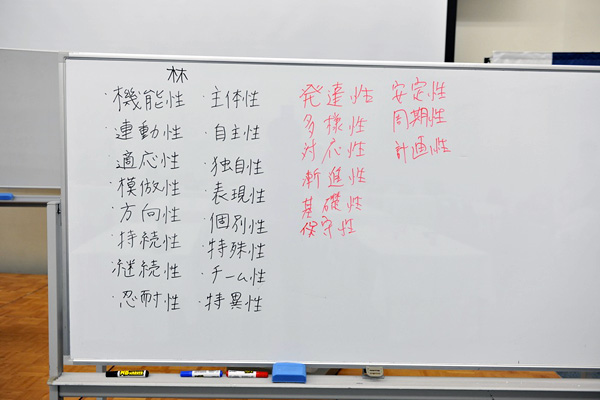 林
・機能性
連動性
適応性
・模倣性
・方向性
・持続性
・継続性
・忍耐性
・主体性
・自主性
・独自性
・表現性
・個別性
・特殊性
・チーム性
・特異性
発達性
多様性
対応性
漸進性
基礎性
保守性
安定性
周期性
計画性